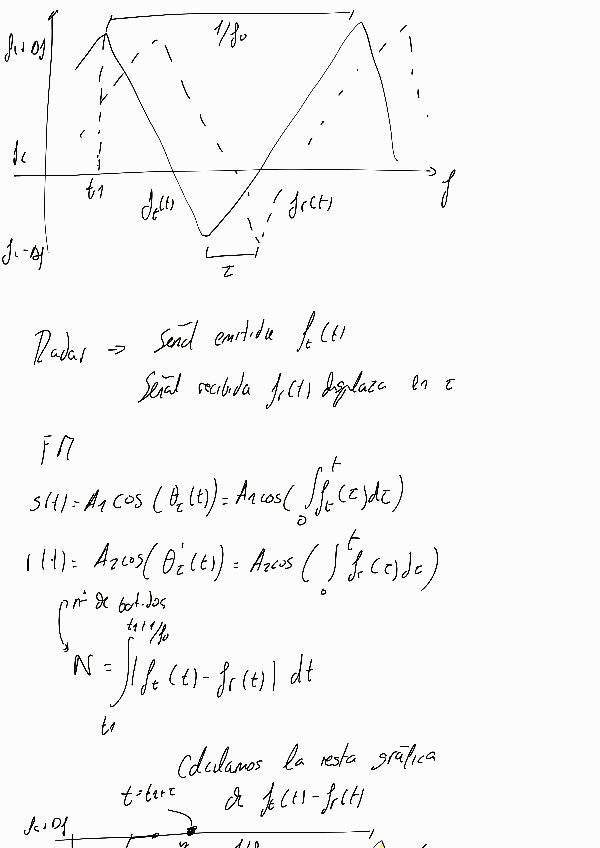 fc+Δf
1/f0
fc
t1
f
ft(t)
fr(t)
fc-Δf
τ
Radar → Señal emitida ft(t)
Señal recibida fr(t) desplaza en τ
FM
s(t) = A1 cos (θi(t)) = A1 cos( ∫0^t ft(τ)dτ)
r(t) = A2 cos( θi'(t)) = A2 cos ( ∫0^t fr(τ)dτ)
nº de batidos
t1+1/f0
N = ∫ |ft(t) - fr(t)| dt
t1
Calculamos la resta gráfica
t=t1+τ
de ft(t) - fr(t)
fc+Δf